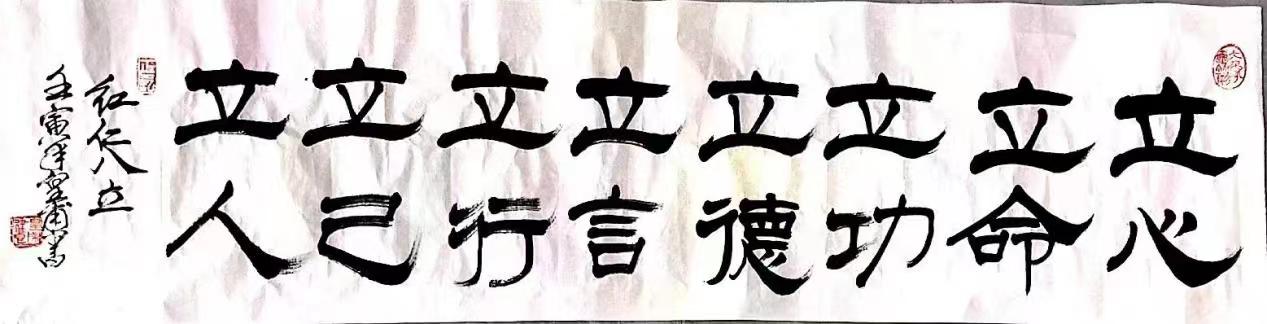 立心
立命
立功
立德
立言
立行
立己
立人
红仁八立
壬寅年皇甫